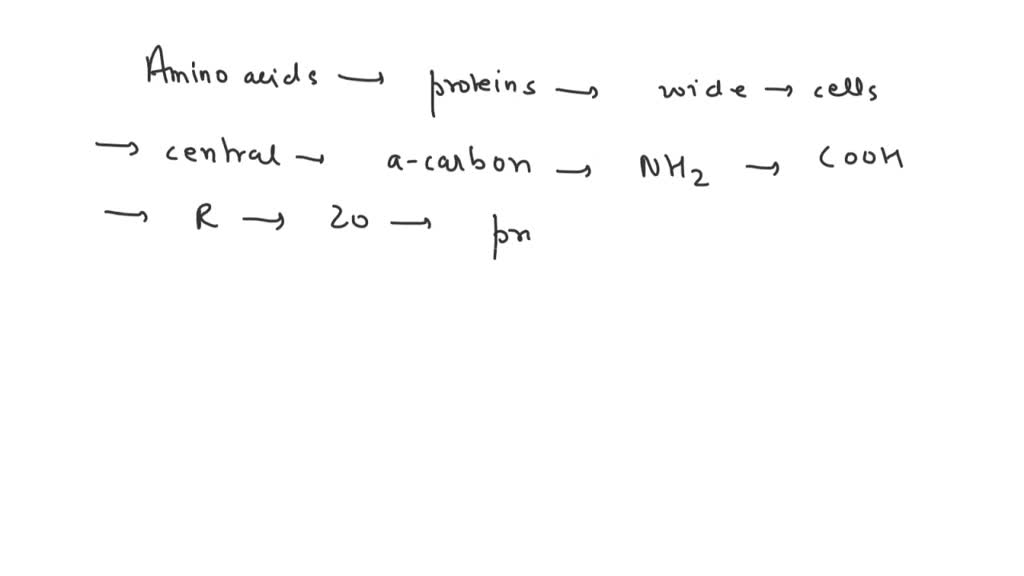 Amino acids → proteins → wide → cells
→ central → a-carbon → NH2 → COOH
→ R → 20 → pr